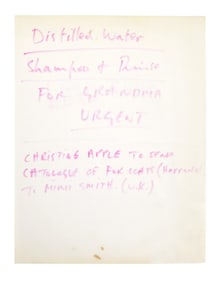 Distilled Water
Shampoo & Rinse
FOR GRANDMA
URGENT
CHRISTINE APPLE TO SEND
CATOLOGUE OF FUR COATS (HARRODS)
TO MIMI SMITH. (U.K.)